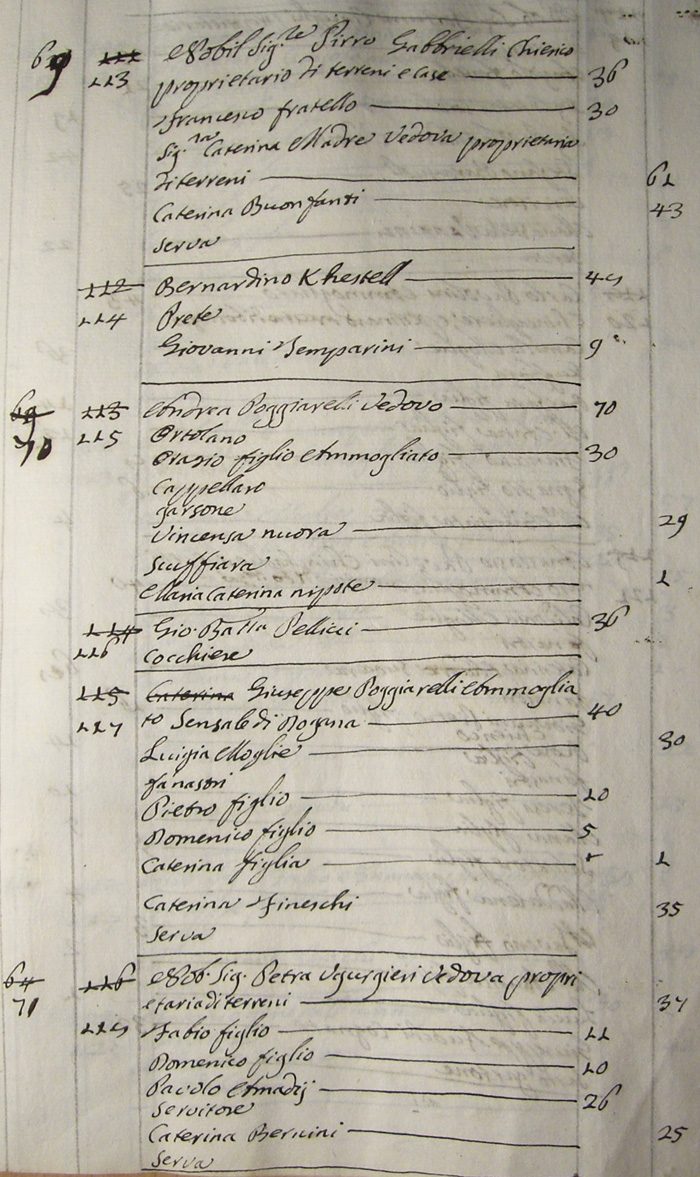 69 111 Nobil Sig.re Pirro Gabbrielli Chierico
113 proprietario di terreni e case 36
Francesco fratello 30
Sig.ra Caterina Madre Vedova proprietaria
di terreni 61
Caterina Buonfanti 43
Serva
112 Bernardino Khestell
114 Prete
Giovanni Semparini 9
69 113 Andrea Poggiarelli Vedovo 70
70 115 Ortolano
Orasio figlio Ammogliato 30
Cappellaro
garsone
Vincensa nuora 29
Scuffiara
Maria Caterina nipote 1
114 Gio. Batta Pellicci 36
116 Cocchiere
115 Caterina Giuseppe Poggiarelli Ammoglia
117 to Sensale di Dogana 40
Luigia Moglie 30
Pietro figlio 10
Domenico figlio 5
Caterina figlia 1
Caterina Fineschi 35
Serva
116 Nob. Sig. Petra Ugurgieri Vedova propri
71 etaria di terreni 37
Fabio figlio 11
Domenico figlio 10
Pauolo Amadij 26
Servitore
Caterina Bernini 25
Serva